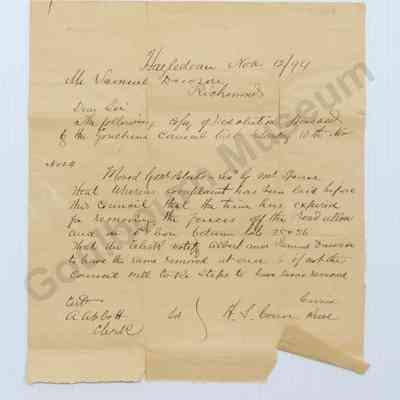 Hazeldean Nov 12/94
Mr Samuel Davison
Richmond
Dear Sir
The following copy of resolution passed
by the Goulburn Council last Saturday 10th Nov
No 14
Moved Geo Blato Sec by Mr Spence
that Whereas complaint has been laid before
this Council that the time has expired
for removing the fences off the road allow
and in 5 Con between lots 25 & 26
that the Clerk notify Albert and Samuel Davison
to have the same removed at once & if not the
Council will take steps to have same removed
A Abbott
Clerk
Sd
Carried
H. S. Reeve
Goulbourn Museum